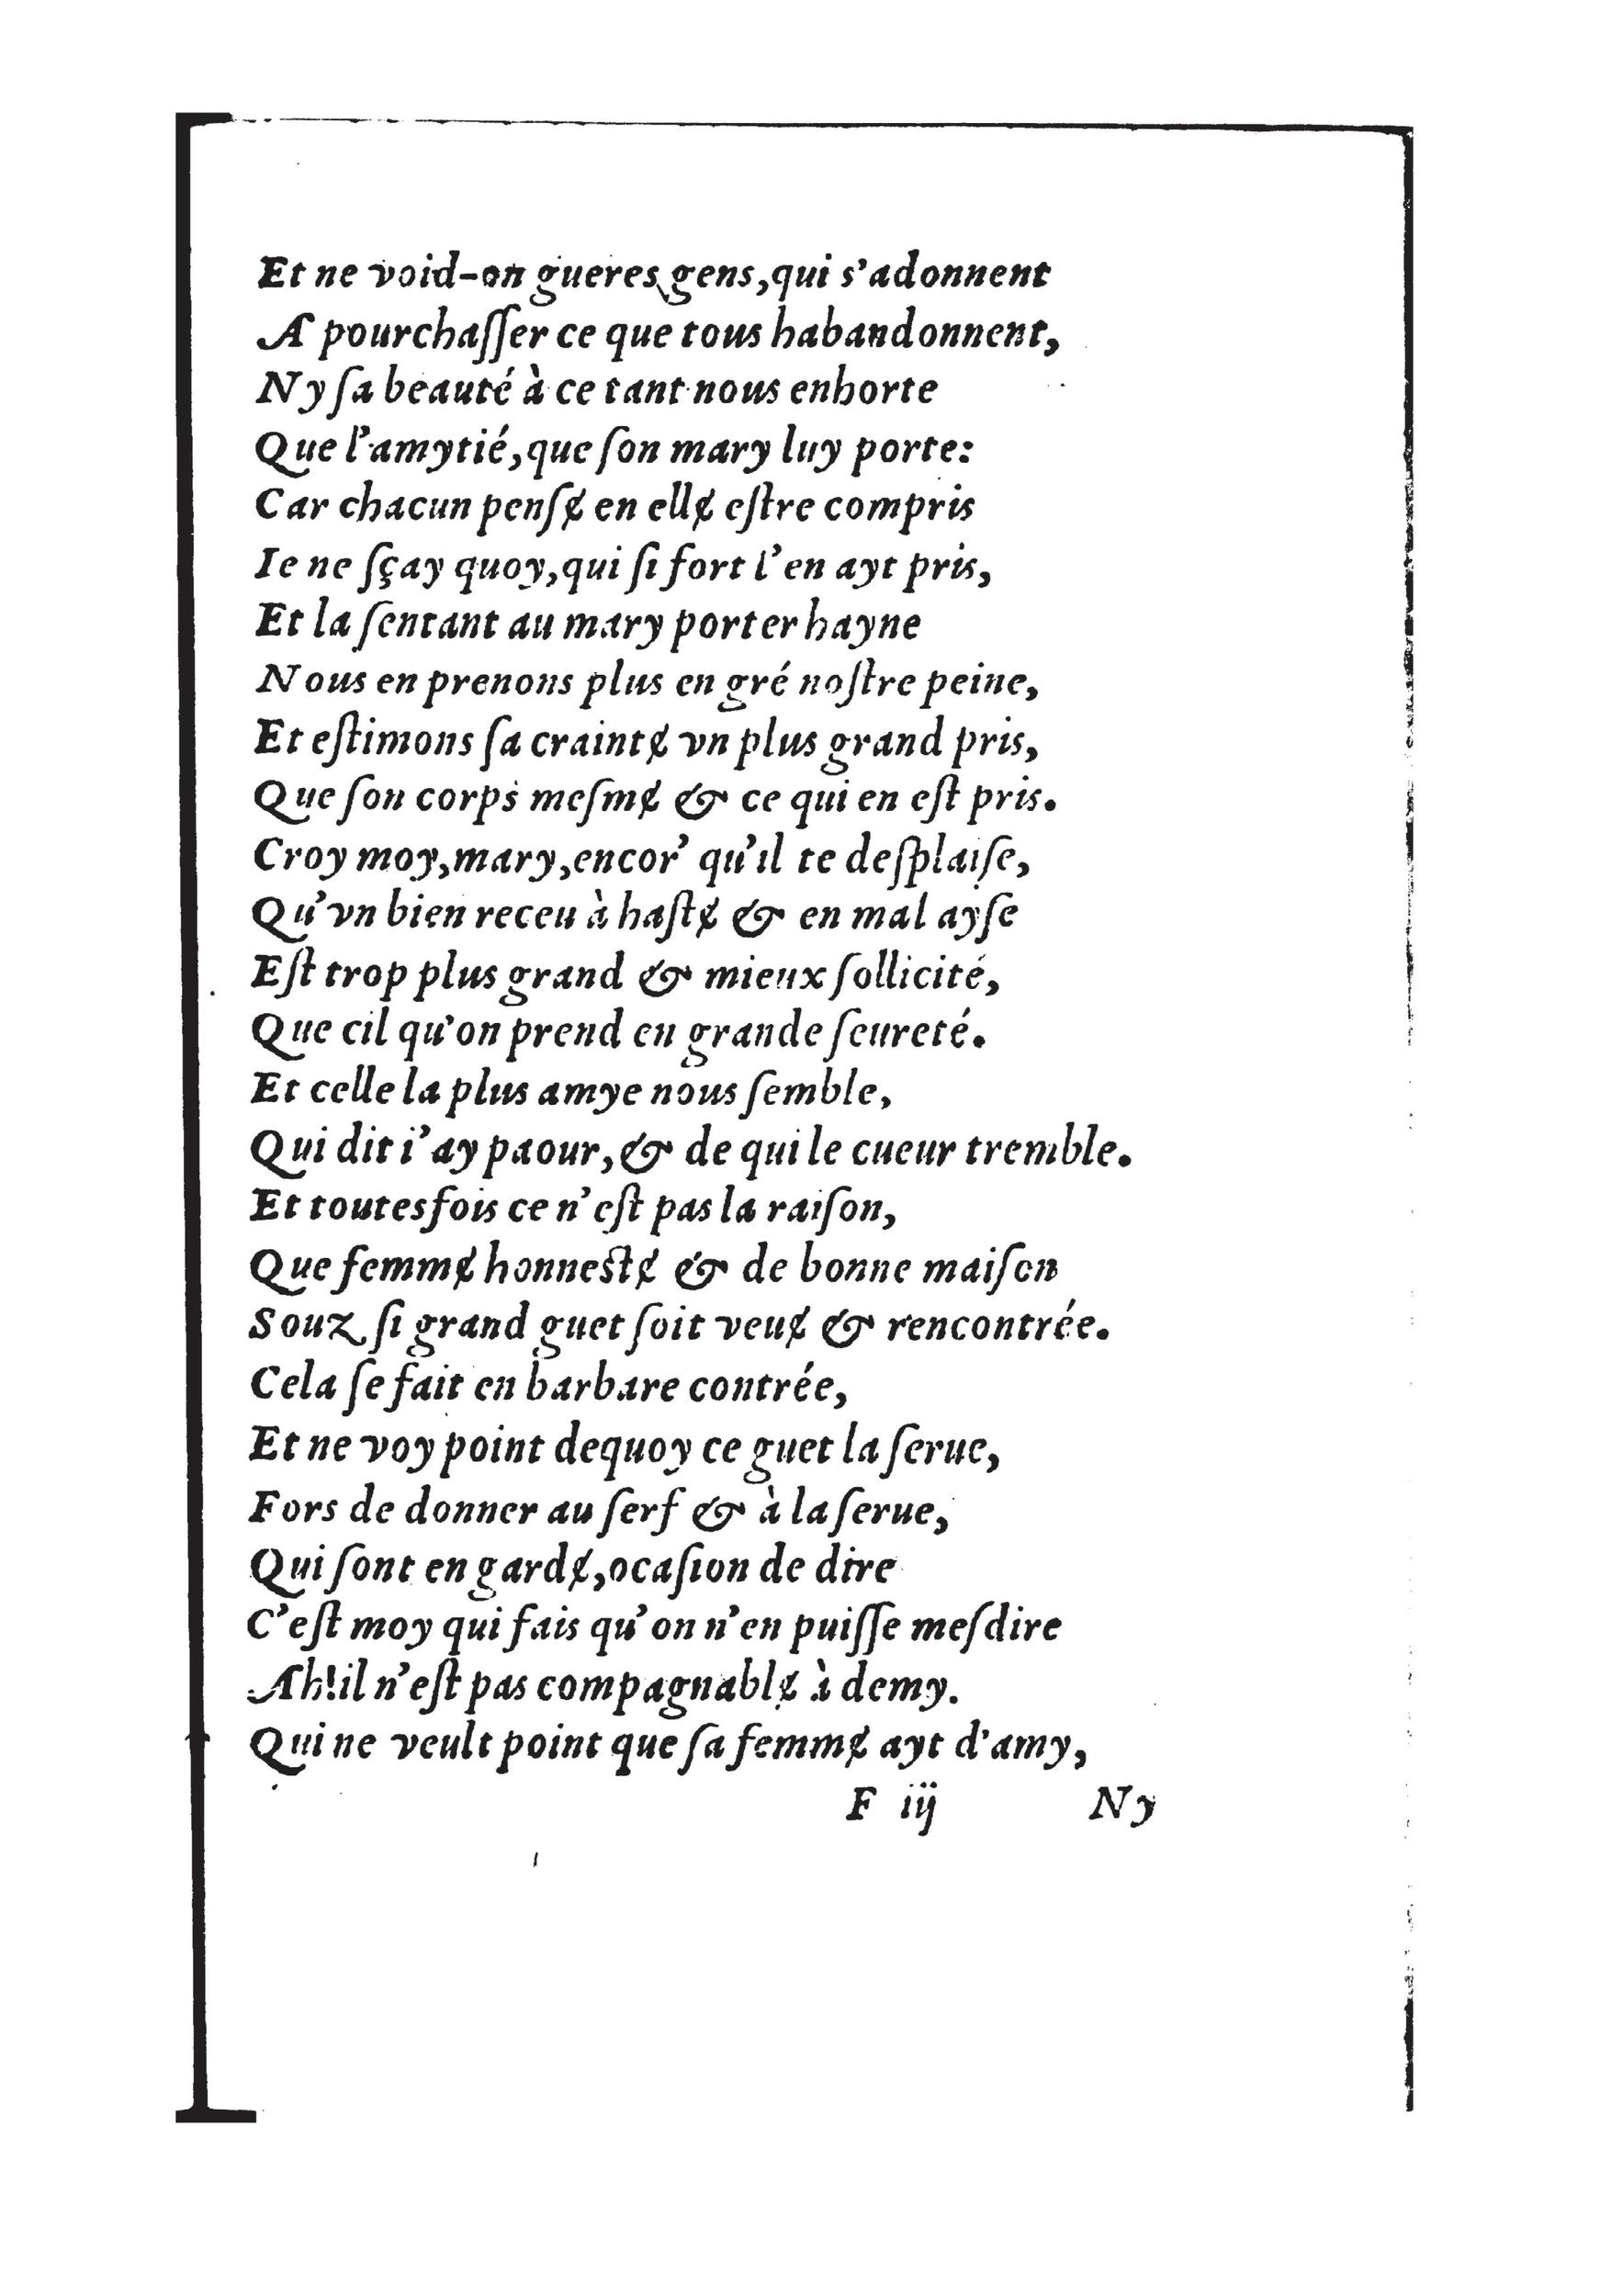 Et ne void-on gueres gens, qui s'adonnent
A pourchaſſer ce que tous habandonnent,
Ny ſa beauté à ce tant nous enhorte
Que l'amytié, que ſon mary luy porte:
Car chacun penſɇ en ellɇ eſtre compris
Ie ne ſçay quoy, qui ſi fort l'en ayt pris,
Et la ſentant au mary porter hayne
Nous en prenons plus en gré noſtre peine,
Et eſtimons ſa craintɇ vn plus grand pris,
Que ſon corps meſmɇ & ce qui en eſt pris.
Croy moy, mary, encor' qu'il te deſplaiſe,
Qu'vn bien receu à haſtɇ & en mal ayſe
Eſt trop plus grand & mieux ſollicité,
Que cil qu'on prend en grande ſeureté.
Et celle la plus amye nous ſemble,
Qui dit i'ay paour, & de qui le cueur tremble.
Et toutesfois ce n'eſt pas la raiſon,
Que femmɇ honneſtɇ & de bonne maiſon
Souz ſi grand guet ſoit veuɇ & rencontrée.
Cela ſe fait en barbare contrée,
Et ne voy point dequoy ce guet la ſerue,
Fors de donner au ſerf & à la ſerue,
Qui ſont en gardɇ, ocaſion de dire
C'eſt moy qui fais qu'on n'en puiſſe meſdire
Ah! il n'eſt pas compagnablɇ à demy.
Qui ne veult point que ſa femmɇ ayt d'amy,
F iij Ny